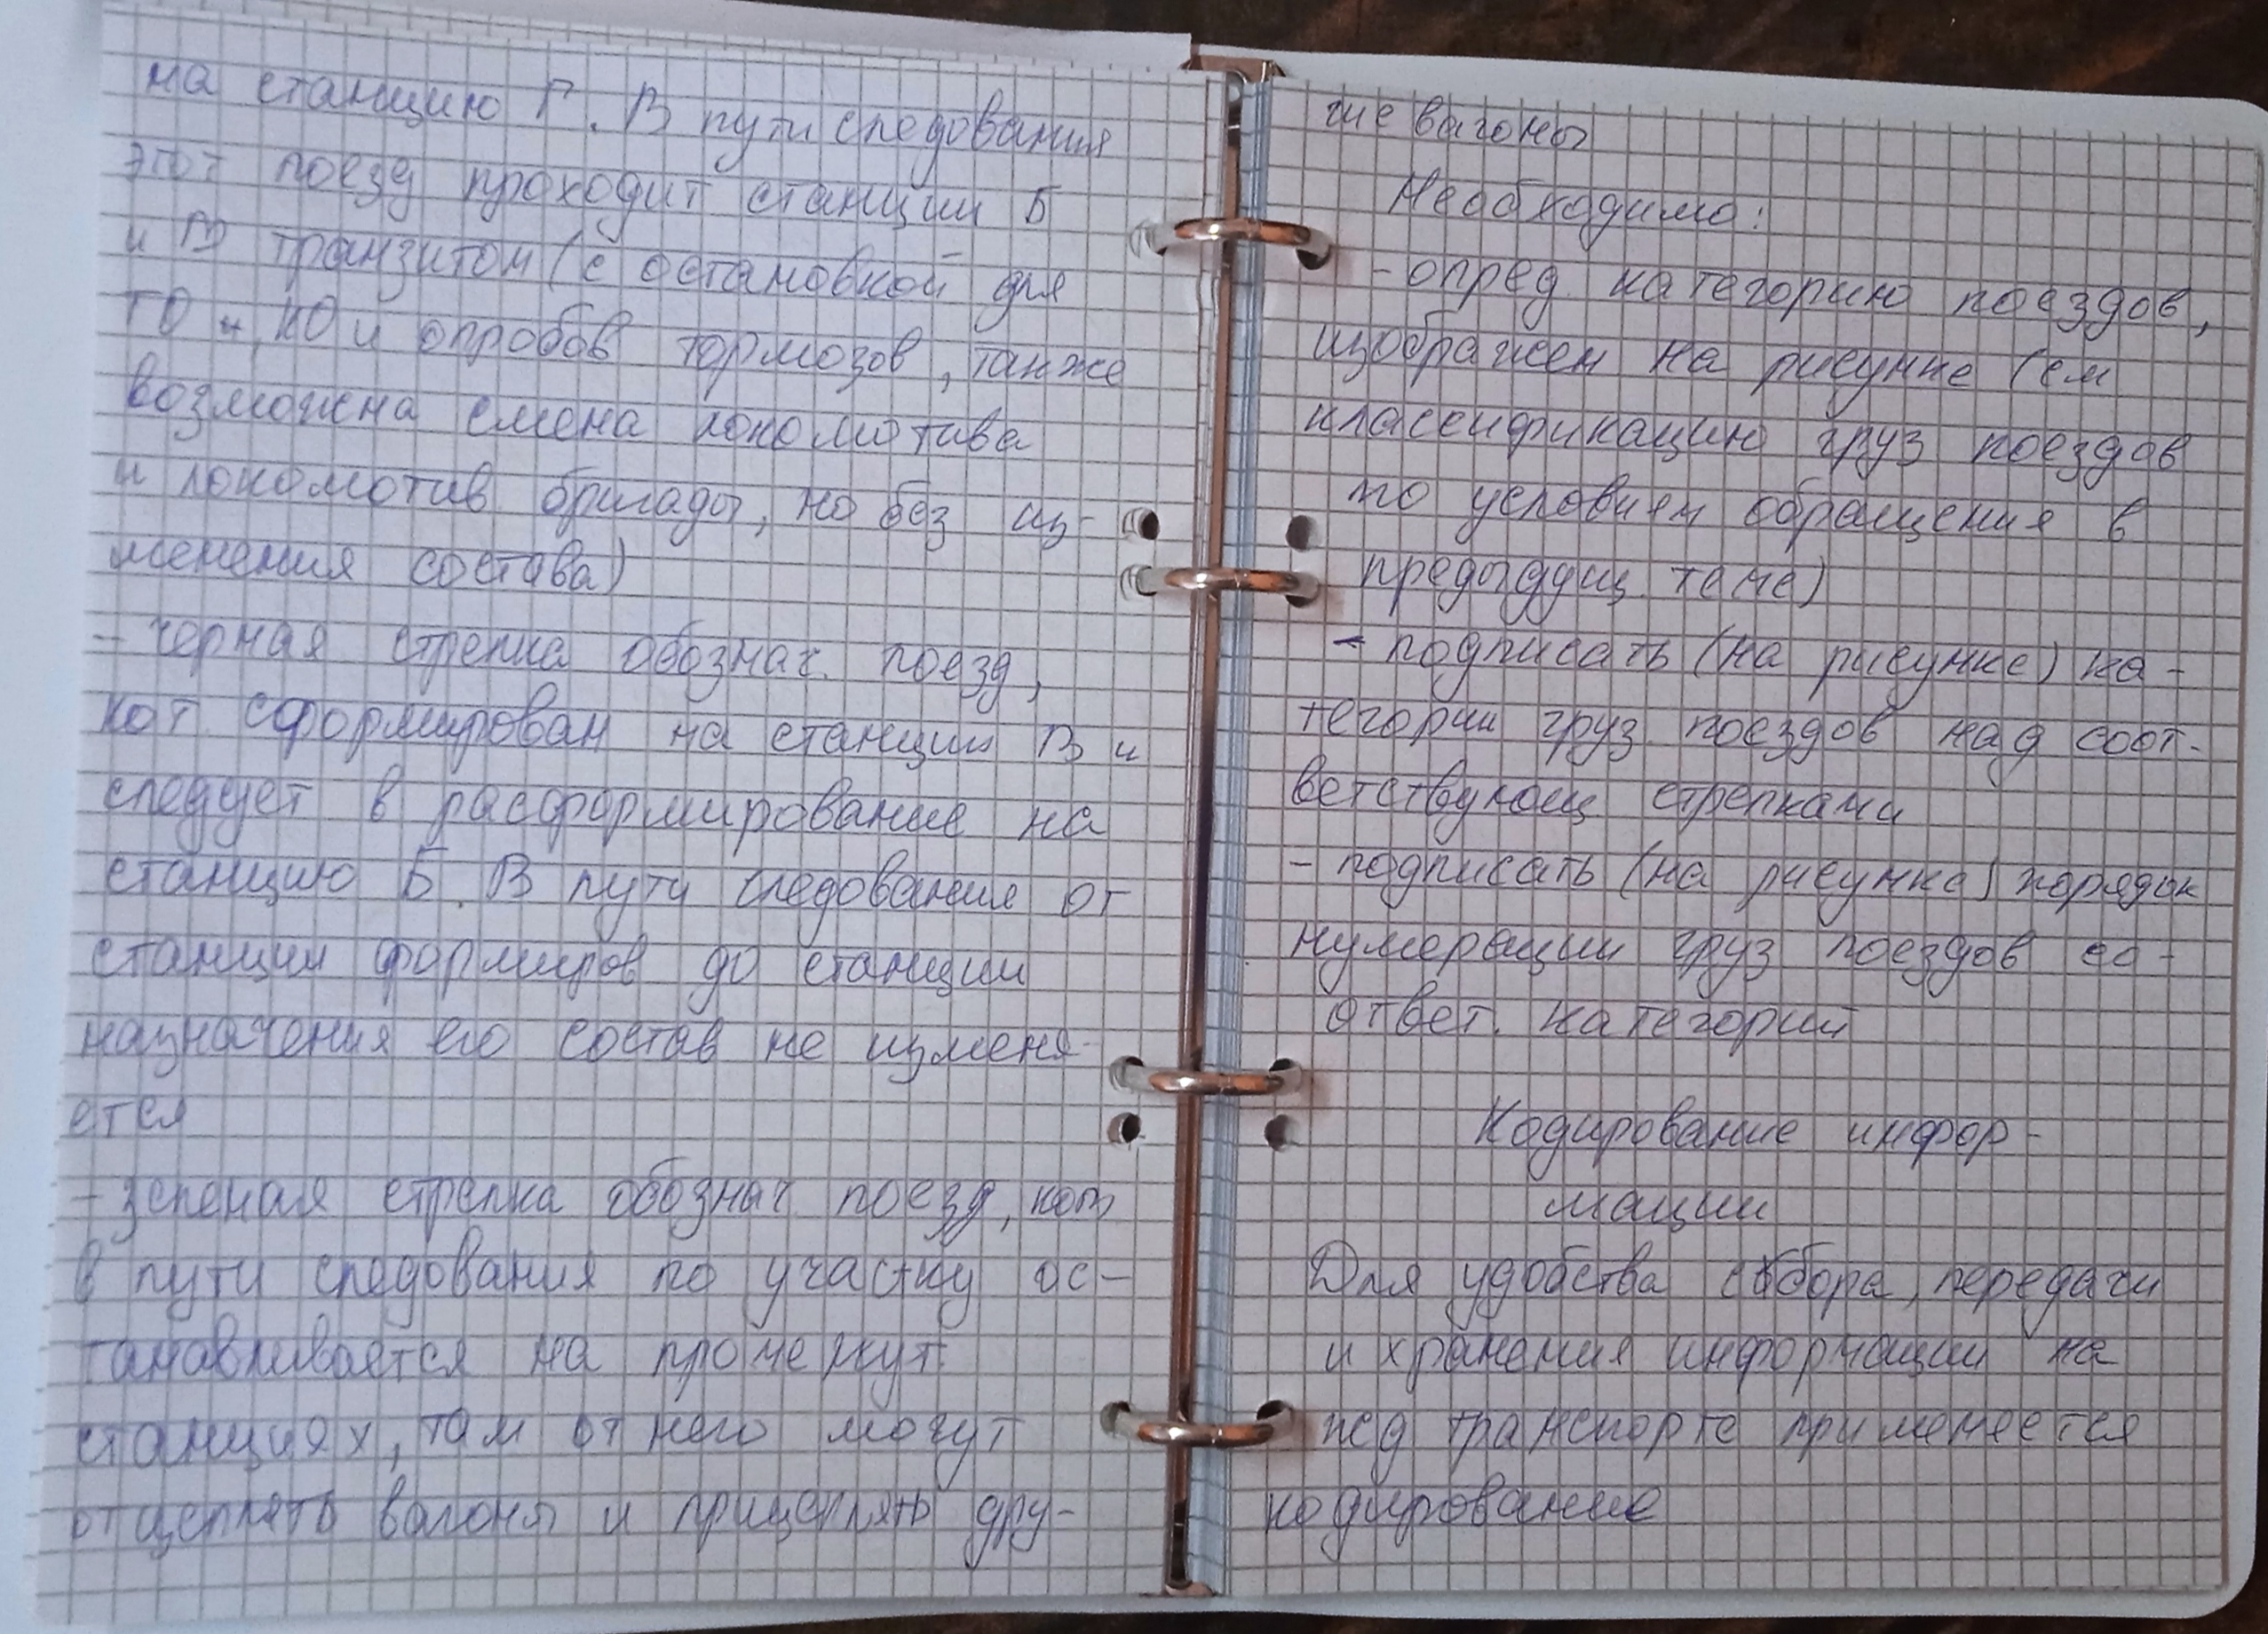 на станцию Г. В пути следования
этот поезд проходит станции Б
и В транзитом (с остановкой для
ТО и КО и опробов тормозов, также
возможна смена локомотива
и локомотив бригады, но без из-
менения состава)
- черная стрелка обознач. поезд,
кот сформирован на станции В и
следует в расформирование на
станцию Б. В пути следования от
станции формиров до станции
назначения его состав не изменя-
ется
- зеленая стрелка обознач поезд, кот
в пути следования по участку ос-
танавливается на промежут.
станциях, там от него могут
отцеплять вагоны и прицеплять дру-
гие вагоны
Необходимо:
- опред. категорию поездов,
изображен на рисунке (см
классификацию груз поездов
по условиям обращения в
предыдущ. теме)
- подписать (на рисунке) ка-
тегории груз. поездов над соот-
ветствующ стрелками
- подписать (на рисунке) порядок
нумерации груз поездов со-
ответ. категорий
Кодирование инфор-
мации
Для удобства сбора, передачи
и хранения информации на
жд транспорте применяется
кодирование